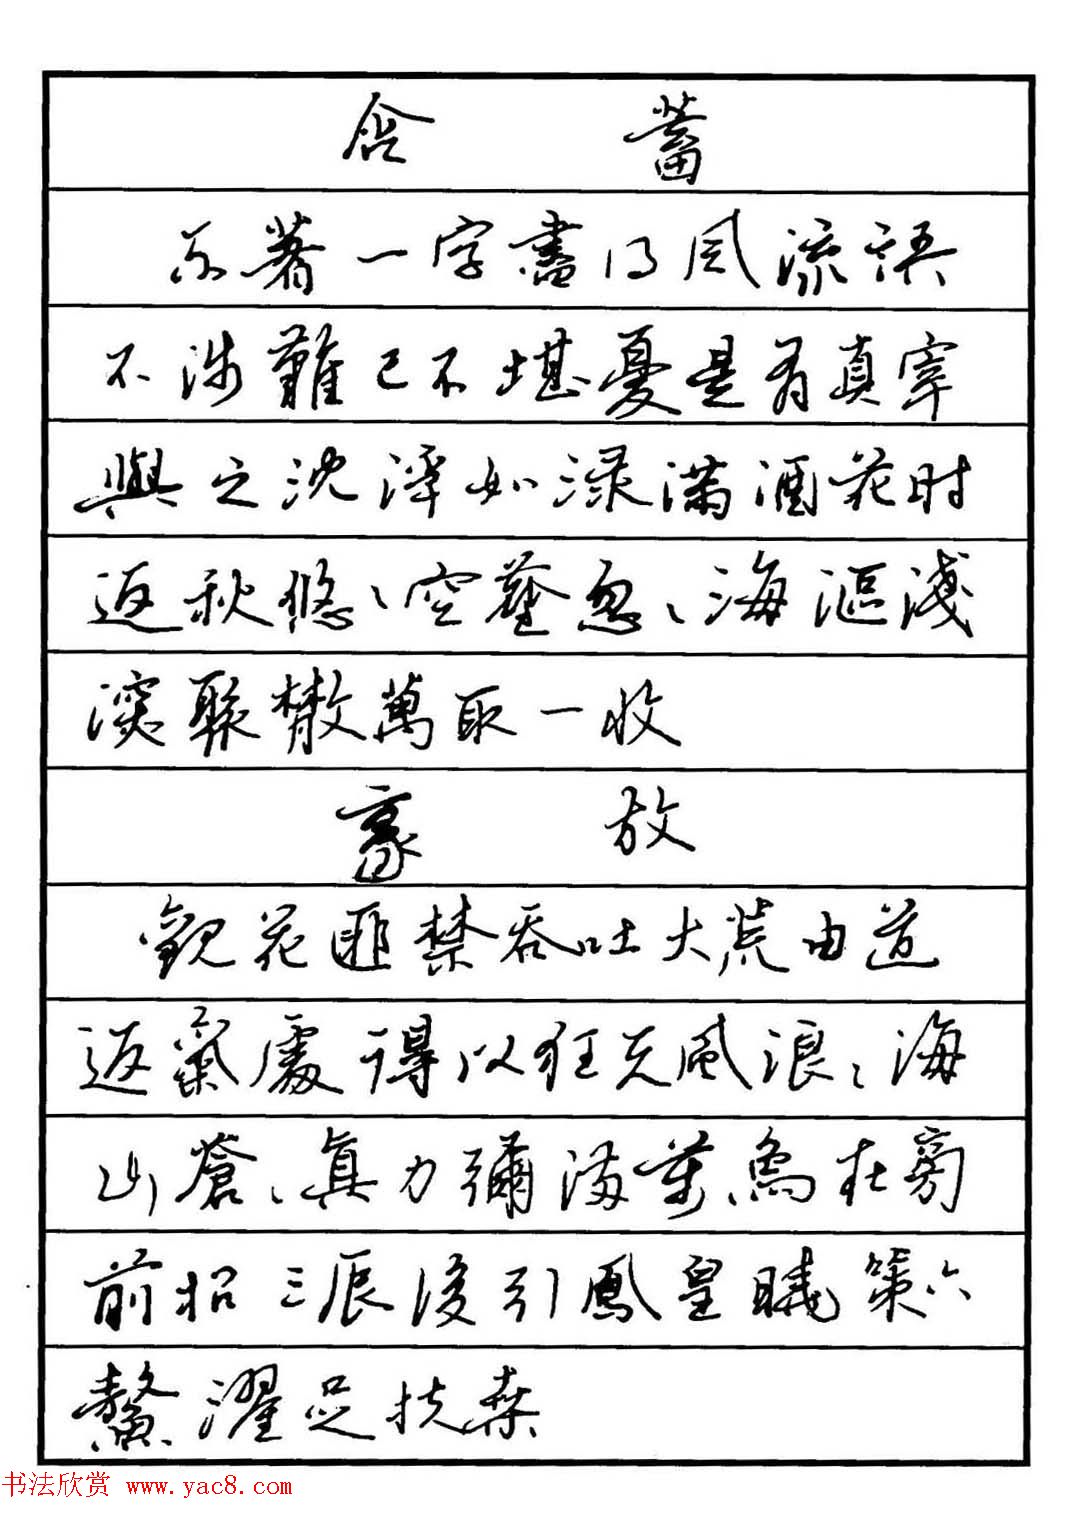 含蓄
不著一字盡得风流語
不涉難已不堪憂是有真宰
與之沈浮如渌滿酒花时
返秋悠〻空塵忽〻海漚淺
深聚散萬取一收
豪放
觀花匪禁吞吐大荒由道
返氣處得以狂克風浪〻海
山蒼〻真力彌滿萬象在旁
前招三辰後引鳳皇曉策六
鰲濯足扶桑
书法欣赏 www.yac8.com